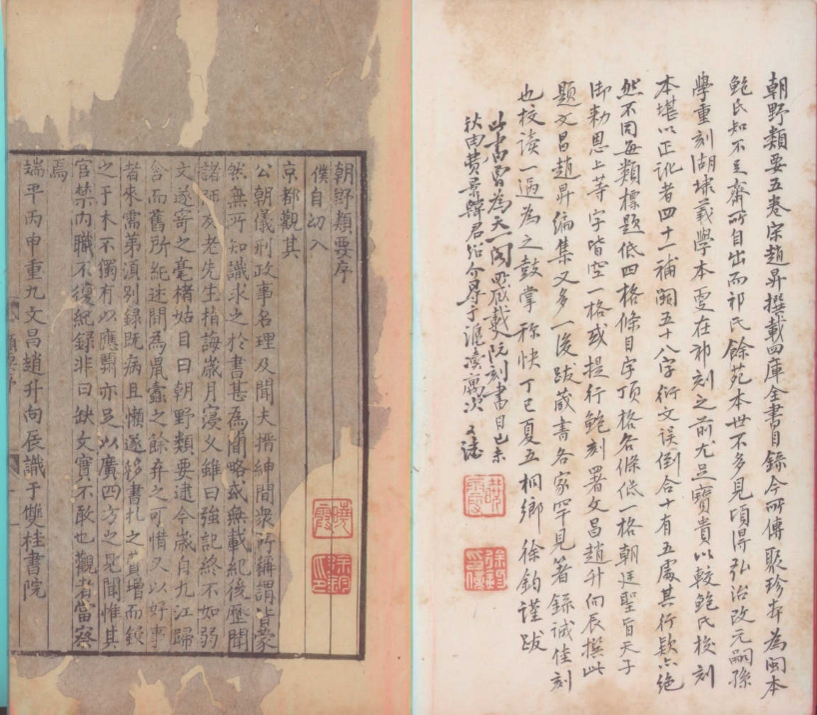 朝野類要五卷宋趙昇撰載四庫全書目錄今所傳聚珍本為閩本
鮑氏知不足齋所自出而祁氏餘苑本世不多見頃得弘治改元嗣孫
學重刻湖埭義學本更在祁刻之前尤足寶貴以較鮑氏梭刻
本堪以正訛者四十一補闕五十八字衍文誤倒合十有五處其行款亦絕
然不同每類標題低四格條目字頂格各條低一格朝廷聖旨天子
御勅恩上等字皆空一格或提行鮑刻署文昌趙升向辰撰此
題文昌趙昇編集又多一後跋藏書各家罕見著錄誠佳刻
也校讀一過為之鼓掌称快丁巳夏五桐鄉徐鈞謹跋
此書曾為天一閣所藏載阮刻書目己未
秋由費景韓君紹介尋于滬瀆寓次又誌
朝野類要序
僕自幼入
京都觀其
公朝儀刑政事名理及聞夫搢紳間衆所稱謂皆蒙
然無所知識求之於書甚為簡略或無載紀後歷聞
諸師友老先生指誨歲月寖久雖曰強記終不如弱
文遂寄之毫楮姑目曰朝野類要逮今歲自九江歸
舍而舊所紀述間為鼠蠹之餘弃之可惜又以好事
者來需第滇別錄既病且懶遂鎔書札之費增而鋟
之于木不獨有以應需亦足以廣四方之見聞惟其
官禁内職不復紀録非曰缺文實不敢也觀者當察
焉
端平丙申重九文昌趙升向辰識于雙桂書院
曉霞
徐鈞印